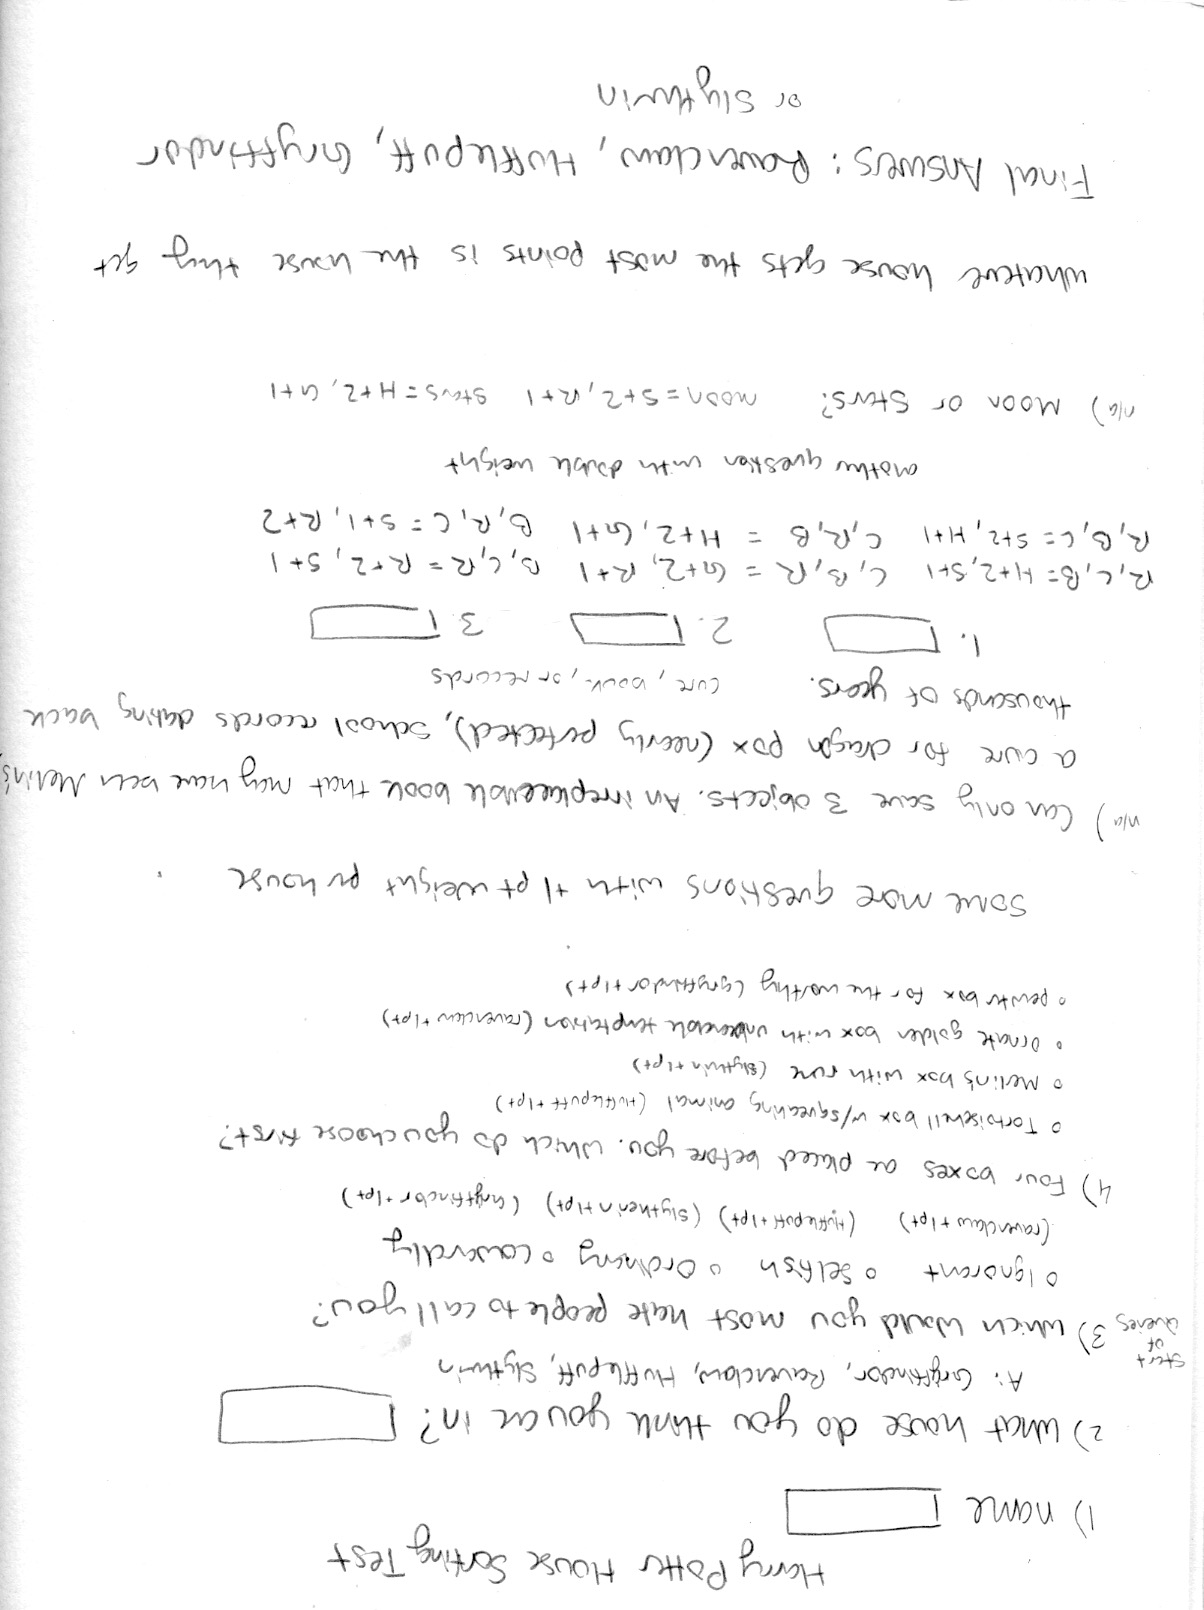 Harry Potter House Sorting Test
1) name
2) What house do you think you are in?
A: Gryffindor, Ravenclaw, Hufflepuff, Slytherin
start of queries
3) Which would you most hate people to call you?
o Ignorant o selfish o Ordinary o cowardly
(ravenclaw +1pt) (Hufflepuff +1pt) (slytherin +1pt) (Gryffindor +1pt)
4) Four boxes are placed before you. Which do you choose first?
o Tortoiseshell box w/squeaking animal (Hufflepuff +1pt)
o Merlin's box with rune (slytherin +1pt)
o Ornate golden box with unbearable temptation (ravenclaw +1pt)
o pewter box for the worthy (gryffindor +1pt)
some more questions with +1 pt weight per house
n/a) Can only save 3 objects. An irreplaceable book that may have been Merlin's,
a cure for dragon pox (nearly perfected), school records dating back
thousands of years. cure, book, or records
1. 2. 3
R,C,B= H+2, S+1 C,B,R = G+2, R+1 B,C,R = R+2, S+1
R,B,C= S+2, H+1 C,R,B = H+2, G+1 B,R,C = S+1, R+2
another question with double weight
n/a) Moon or Stars? moon = S+2, R+1 stars = H+2, G+1
whatever house gets the most points is the house they get
Final Answers: Ravenclaw, Hufflepuff, Gryffindor
or Slytherin